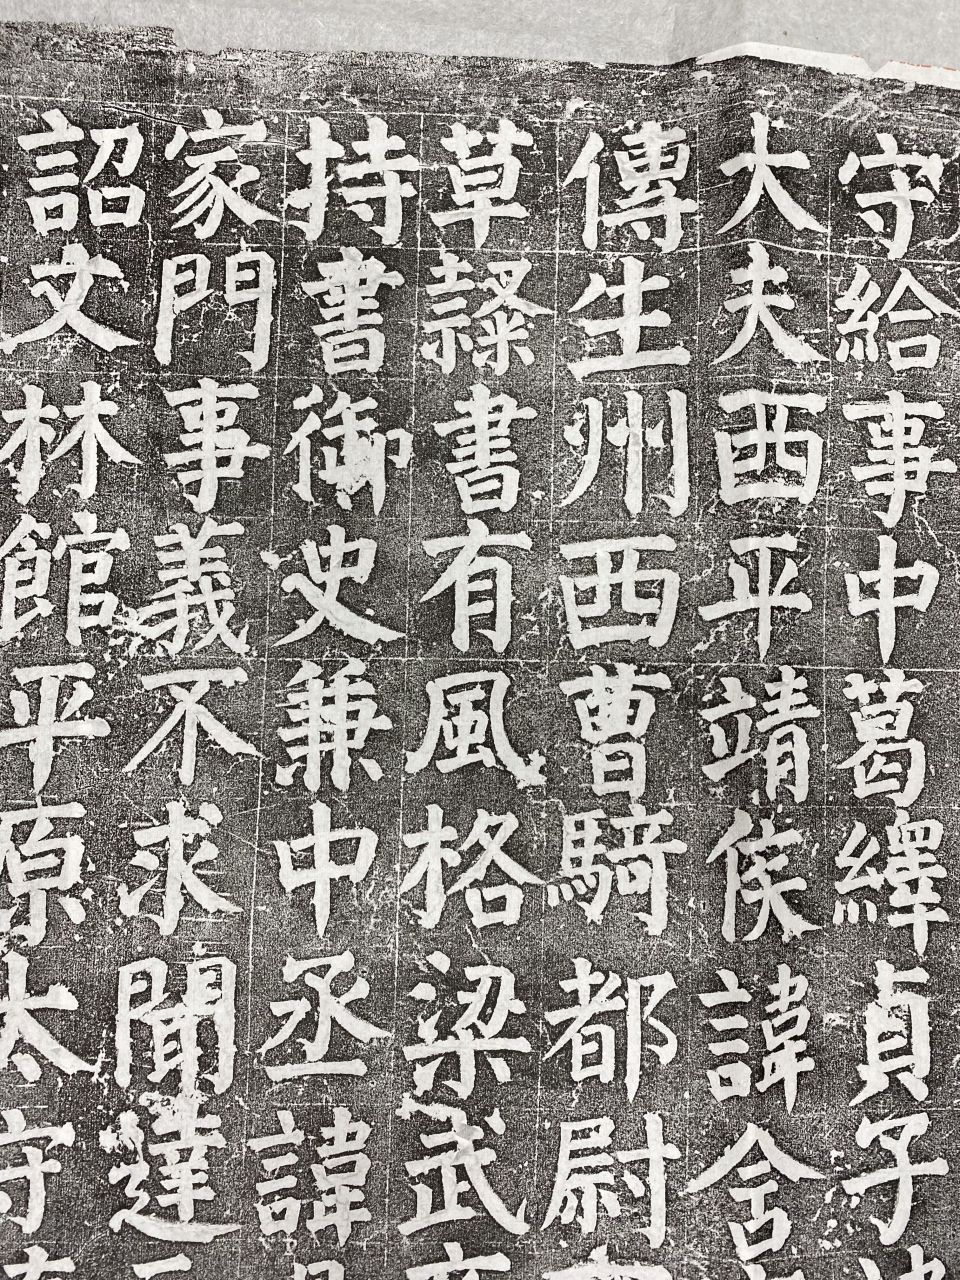 守給事中葛繹貞子
大夫西平靖侯諱含
傳生州西曹騎都尉
草隷書有風格梁武
持書御史兼中丞諱
家門事義不求聞達
詔文林館平原太守